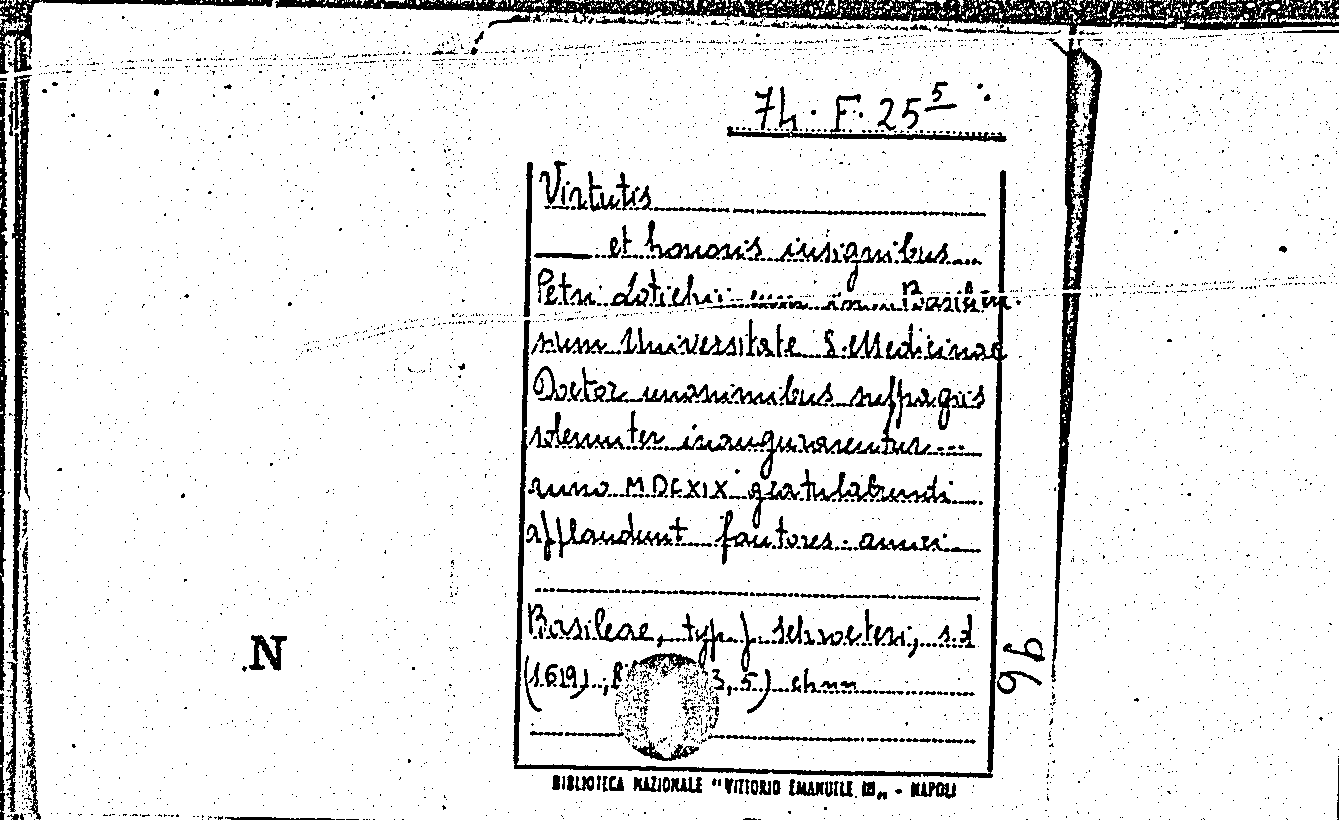 74. F. 25 5
Virtutis
et honoris insignibus
Petri Lotichii in Basilien
sium Universitate S. Medicinae
Doctor unanimibus suffragiis
solemniter inaugurarentur...
anno MDCXIX gratulabundi
applaudunt fautores amici
Basileae, typ. J. Schroeteri, s.d
(1619), 3, 5) chnn
96
N
BIBLIOTECA NAZIONALE "VITTORIO EMANUELE III" - NAPOLI